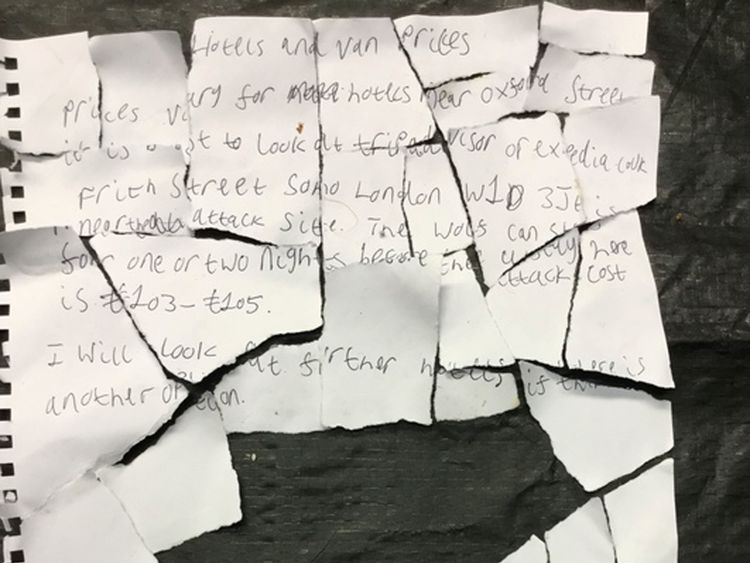 Hotels and van Prices
Prices vary for hotels near oxford Street
it is to look at tripadvisor or expedia
Frith Street Soho London W1D 3J is
near attack site. The wolfs can
for one or two nights before the attack cost
is £103-£105.
I will look at further hotels if there is
another option.